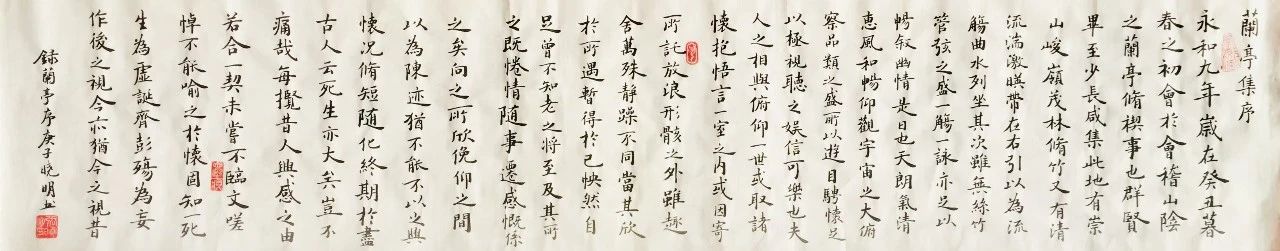 蘭亭集序
永和九年歲在癸丑暮
春之初會於會稽山陰
之蘭亭脩稧事也群賢
畢至少長咸集此地有崇
山峻嶺茂林脩竹又有清
流湍激暎帶左右引以為流
觴曲水列坐其次雖無絲竹
管弦之盛一觴一詠亦足以
暢敘幽情是日也天朗氣清
惠風和暢仰觀宇宙之大俯
察品類之盛所以遊目騁懷足
以極視聽之娛信可樂也夫
人之相與俯仰一世或取諸
懷抱悟言一室之內或因寄
所託放浪形骸之外雖趣
舍萬殊靜躁不同當其欣
於所遇暫得於己怏然自
足曾不知老之將至及其所
之既惓情隨事遷感慨係
之矣向之所欣俛仰之間
以為陳迹猶不能不以之興
懷況脩短隨化終期於盡
古人云死生亦大矣豈不
痛哉每攬昔人興感之由
若合一契未嘗不臨文嗟
悼不能喻之於懷固知一死
生為虛誕齊彭殤為妄
作後之視今亦猶今之視昔
錄蘭亭序庚子曉明書